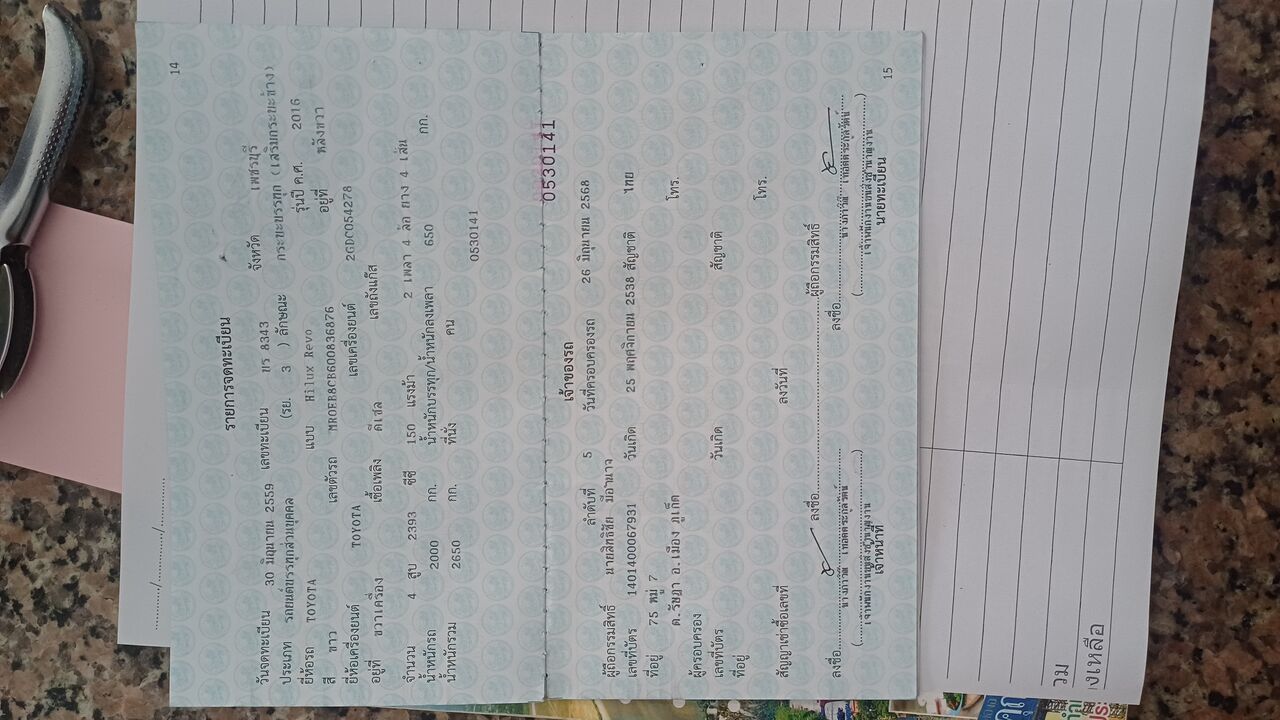 14
รายการจดทะเบียน
วันจดทะเบียน 30 มิถุนายน 2559 เลขทะเบียน 8343 จังหวัด เพชรบุรี
ประเภท รถยนต์บรรทุกส่วนบุคคล (รย. 3 ) ลักษณะ กระบะบรรทุก (เสริมกระบะข้าง)
ยี่ห้อรถ TOYOTA แบบ Hilux Revo รุ่นปี ค.ศ. 2016
สี ขาว เลขตัวรถ MR0FB8CB600836876 อยู่ที่ หลังขวา
ยี่ห้อเครื่องยนต์ TOYOTA เลขเครื่องยนต์ 2GDC054278
อยู่ที่ ขวาเครื่อง เชื้อเพลิง ดีเซล เลขถังแก๊ส
จำนวน 4 สูบ 2393 ซีซี 150 แรงม้า 2 เพลา 4 ล้อ ยาง 4 เส้น
น้ำหนักรถ 2000 กก. น้ำหนักบรรทุก/น้ำหนักลงเพลา 650 กก.
น้ำหนักรวม 2650 กก. ที่นั่ง คน
0530141
0530141
เจ้าของรถ
ลำดับที่ 5 วันที่ครอบครองรถ 26 มิถุนายน 2568
ผู้ถือกรรมสิทธิ์ นายสิทธิชัย มีอานาว
เลขที่บัตร 1401400067931 วันเกิด 25 พฤศจิกายน 2538 สัญชาติ ไทย
ที่อยู่ 75 หมู่ 7 โทร.
ต.รัษฎา อ.เมือง ภูเก็ต
ผู้ครอบครอง
เลขที่บัตร วันเกิด สัญชาติ
ที่อยู่ โทร.
สัญญาเช่าซื้อเลขที่ ลงวันที่
ลงชื่อ ผู้ถือกรรมสิทธิ์
ลงชื่อ ลงชื่อ
เจ้าหน้าที่ นายทะเบียน
15
วม
งเหลือ